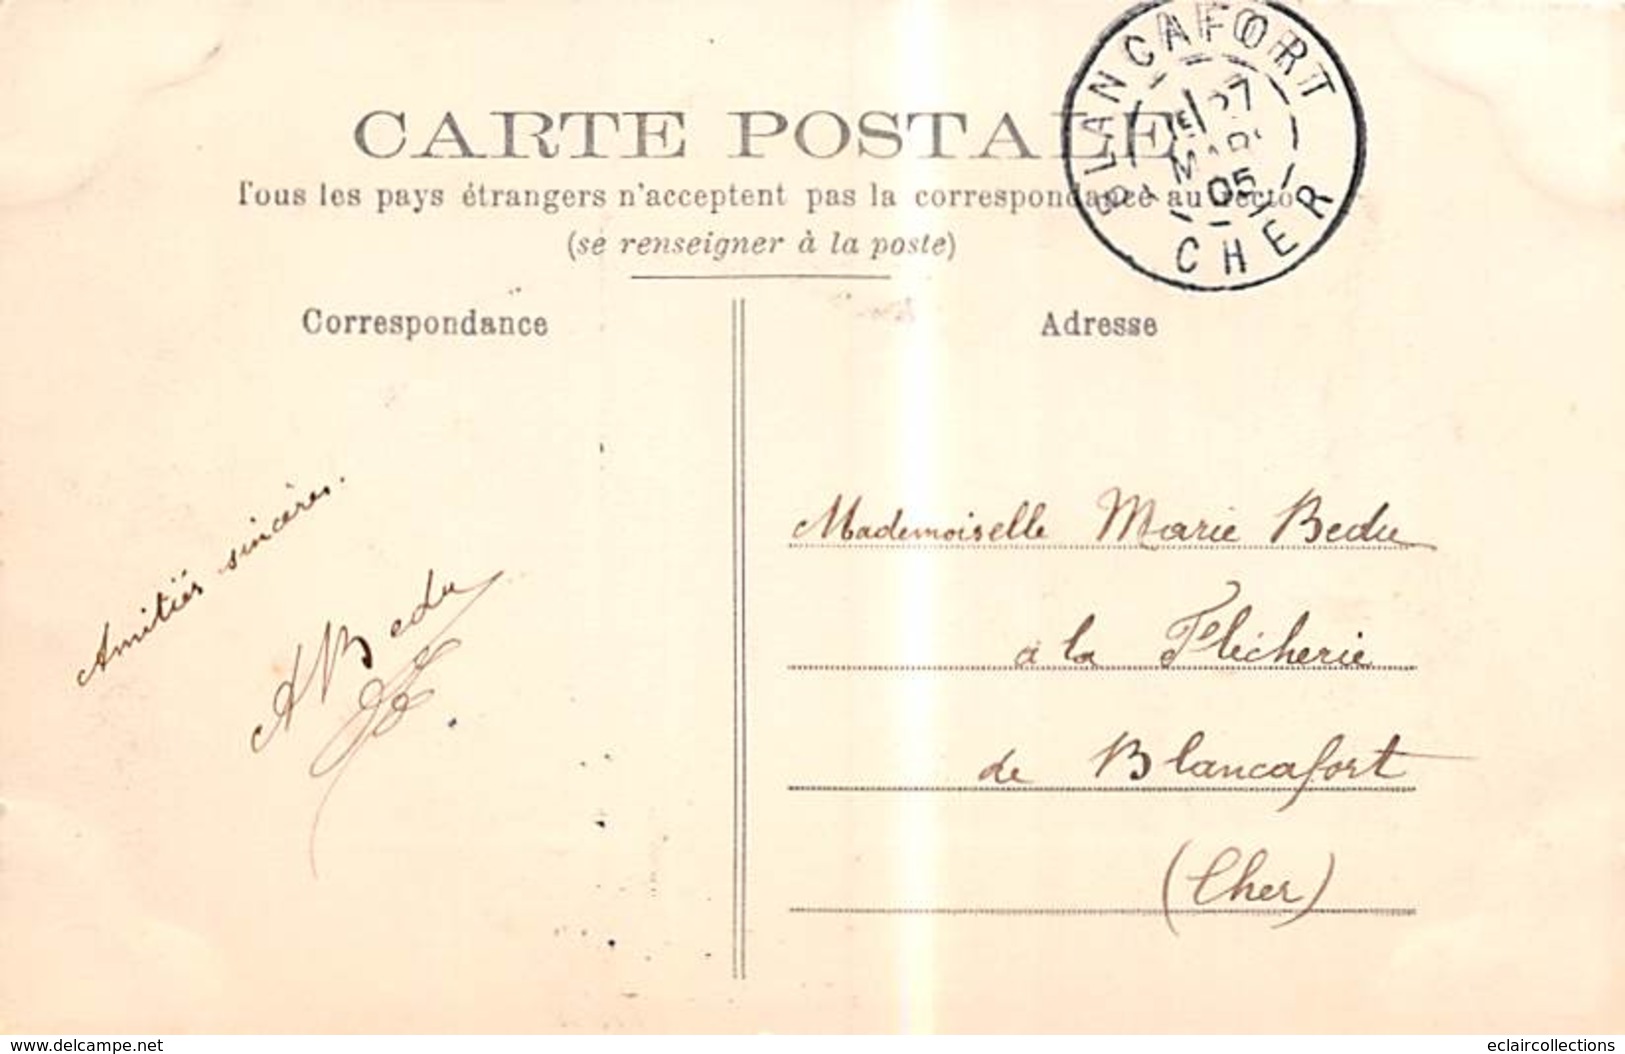 CARTE POSTALE
Tous les pays étrangers n'acceptent pas la correspondance au recto
(se renseigner à la poste)
BLANCAFORT
27
MARS
05
CHER
Correspondance
Adresse
Amitiés sincères.
A Bedu
Mademoiselle Marie Bedu
à la Flécherie
de Blancafort
(Cher)
www.delcampe.net
eclaircollections